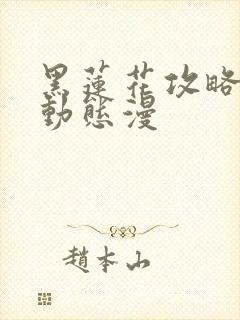 黑蓮花攻略
動態漫
趙本山